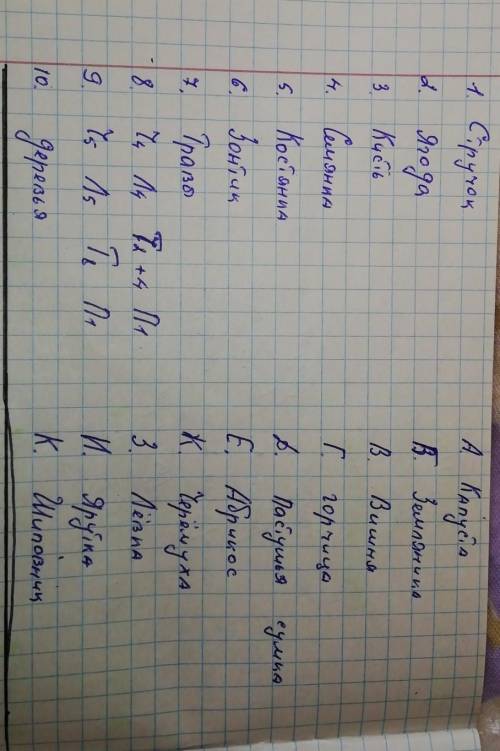 1. Стручок
2. Ягода
3. Кисть
4. Семянка
5. Костянка
6. Зонтик
7. Травы
8. Ч4 Л4 Т2+4 П1
9. Ч5 Л5 Т6 П1
10. деревья
А. Капуста
Б. Земляника
В. Вишня
Г. горчица
Д. пастушья сумка
Е. Абрикос
Ж. Черёмуха
З. Лёвна
И. Ярутка
К. Шиповник